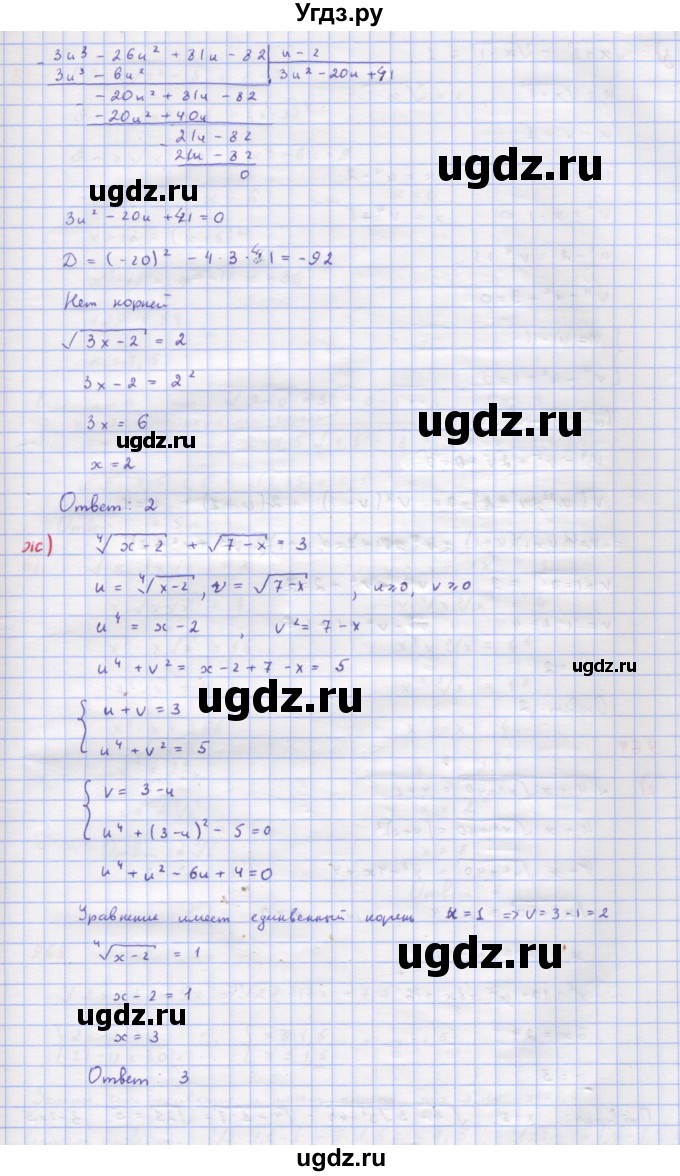 Угдз.ру
3u³ - 26u² + 81u - 82 | u - 2
3u³ - 6u² | 3u² - 20u + 41
- 20u² + 81u - 82
- 20u² + 40u
ugdz.ru
41u - 82
41u - 82
0
ugdz.ru
3u² - 20u + 41 = 0
D = (-20)² - 4·3·41 = -92
Нет корней
√(3x - 2) = 2
3x - 2 = 2²
3x = 6
ugdz.ru
ugdz.ru
x = 2
Ответ: 2
ж) ⁴√(x - 2) + √(7 - x) = 3
u = ⁴√(x - 2), v = √(7 - x), u ≥ 0, v ≥ 0
u⁴ = x - 2, v² = 7 - x
u⁴ + v² = x - 2 + 7 - x = 5
ugdz.ru
ugdz.ru
{ u + v = 3
u⁴ + v² = 5
{ v = 3 - u
u⁴ + (3 - u)² - 5 = 0
ugdz.ru
u⁴ + u² - 6u + 4 = 0
Уравнение имеет единвенный корень u = 1 => v = 3 - 1 = 2
⁴√(x - 2) = 1
ugdz.ru
x - 2 = 1
ugdz.ru
x = 3
Ответ: 3
ugdz.ru